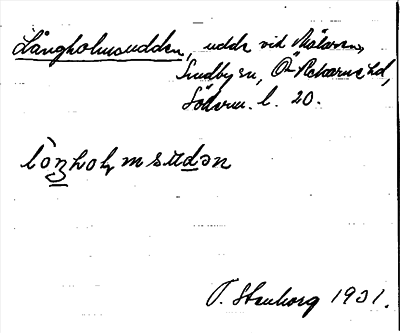 Långholmsudden, udde vid Mälaren,
Sundby sn, Ö-Rekarne hd,
Söderm. l. 20.
lòŋhoḷmsūdən
T. Stenborg 1931.